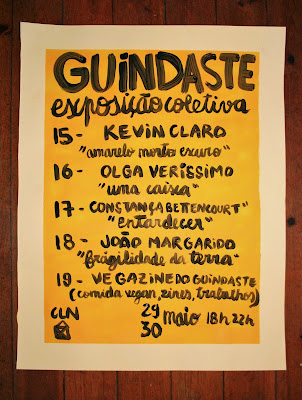 GUINDASTE
exposição coletiva
15 - KEVIN CLARO
"amarelo morto escuro"
16 - OLGA VERÍSSIMO
"uma caixa"
17 - CONSTANÇA BETTENCOURT
"entardecer"
18 - JOÃO MARGARIDO
"fragilidade da terra"
19 - VEGAZINE DO GUINDASTE
(comida vegan, zines, trabalhos)
CLN 29 maio 18h 22h
30